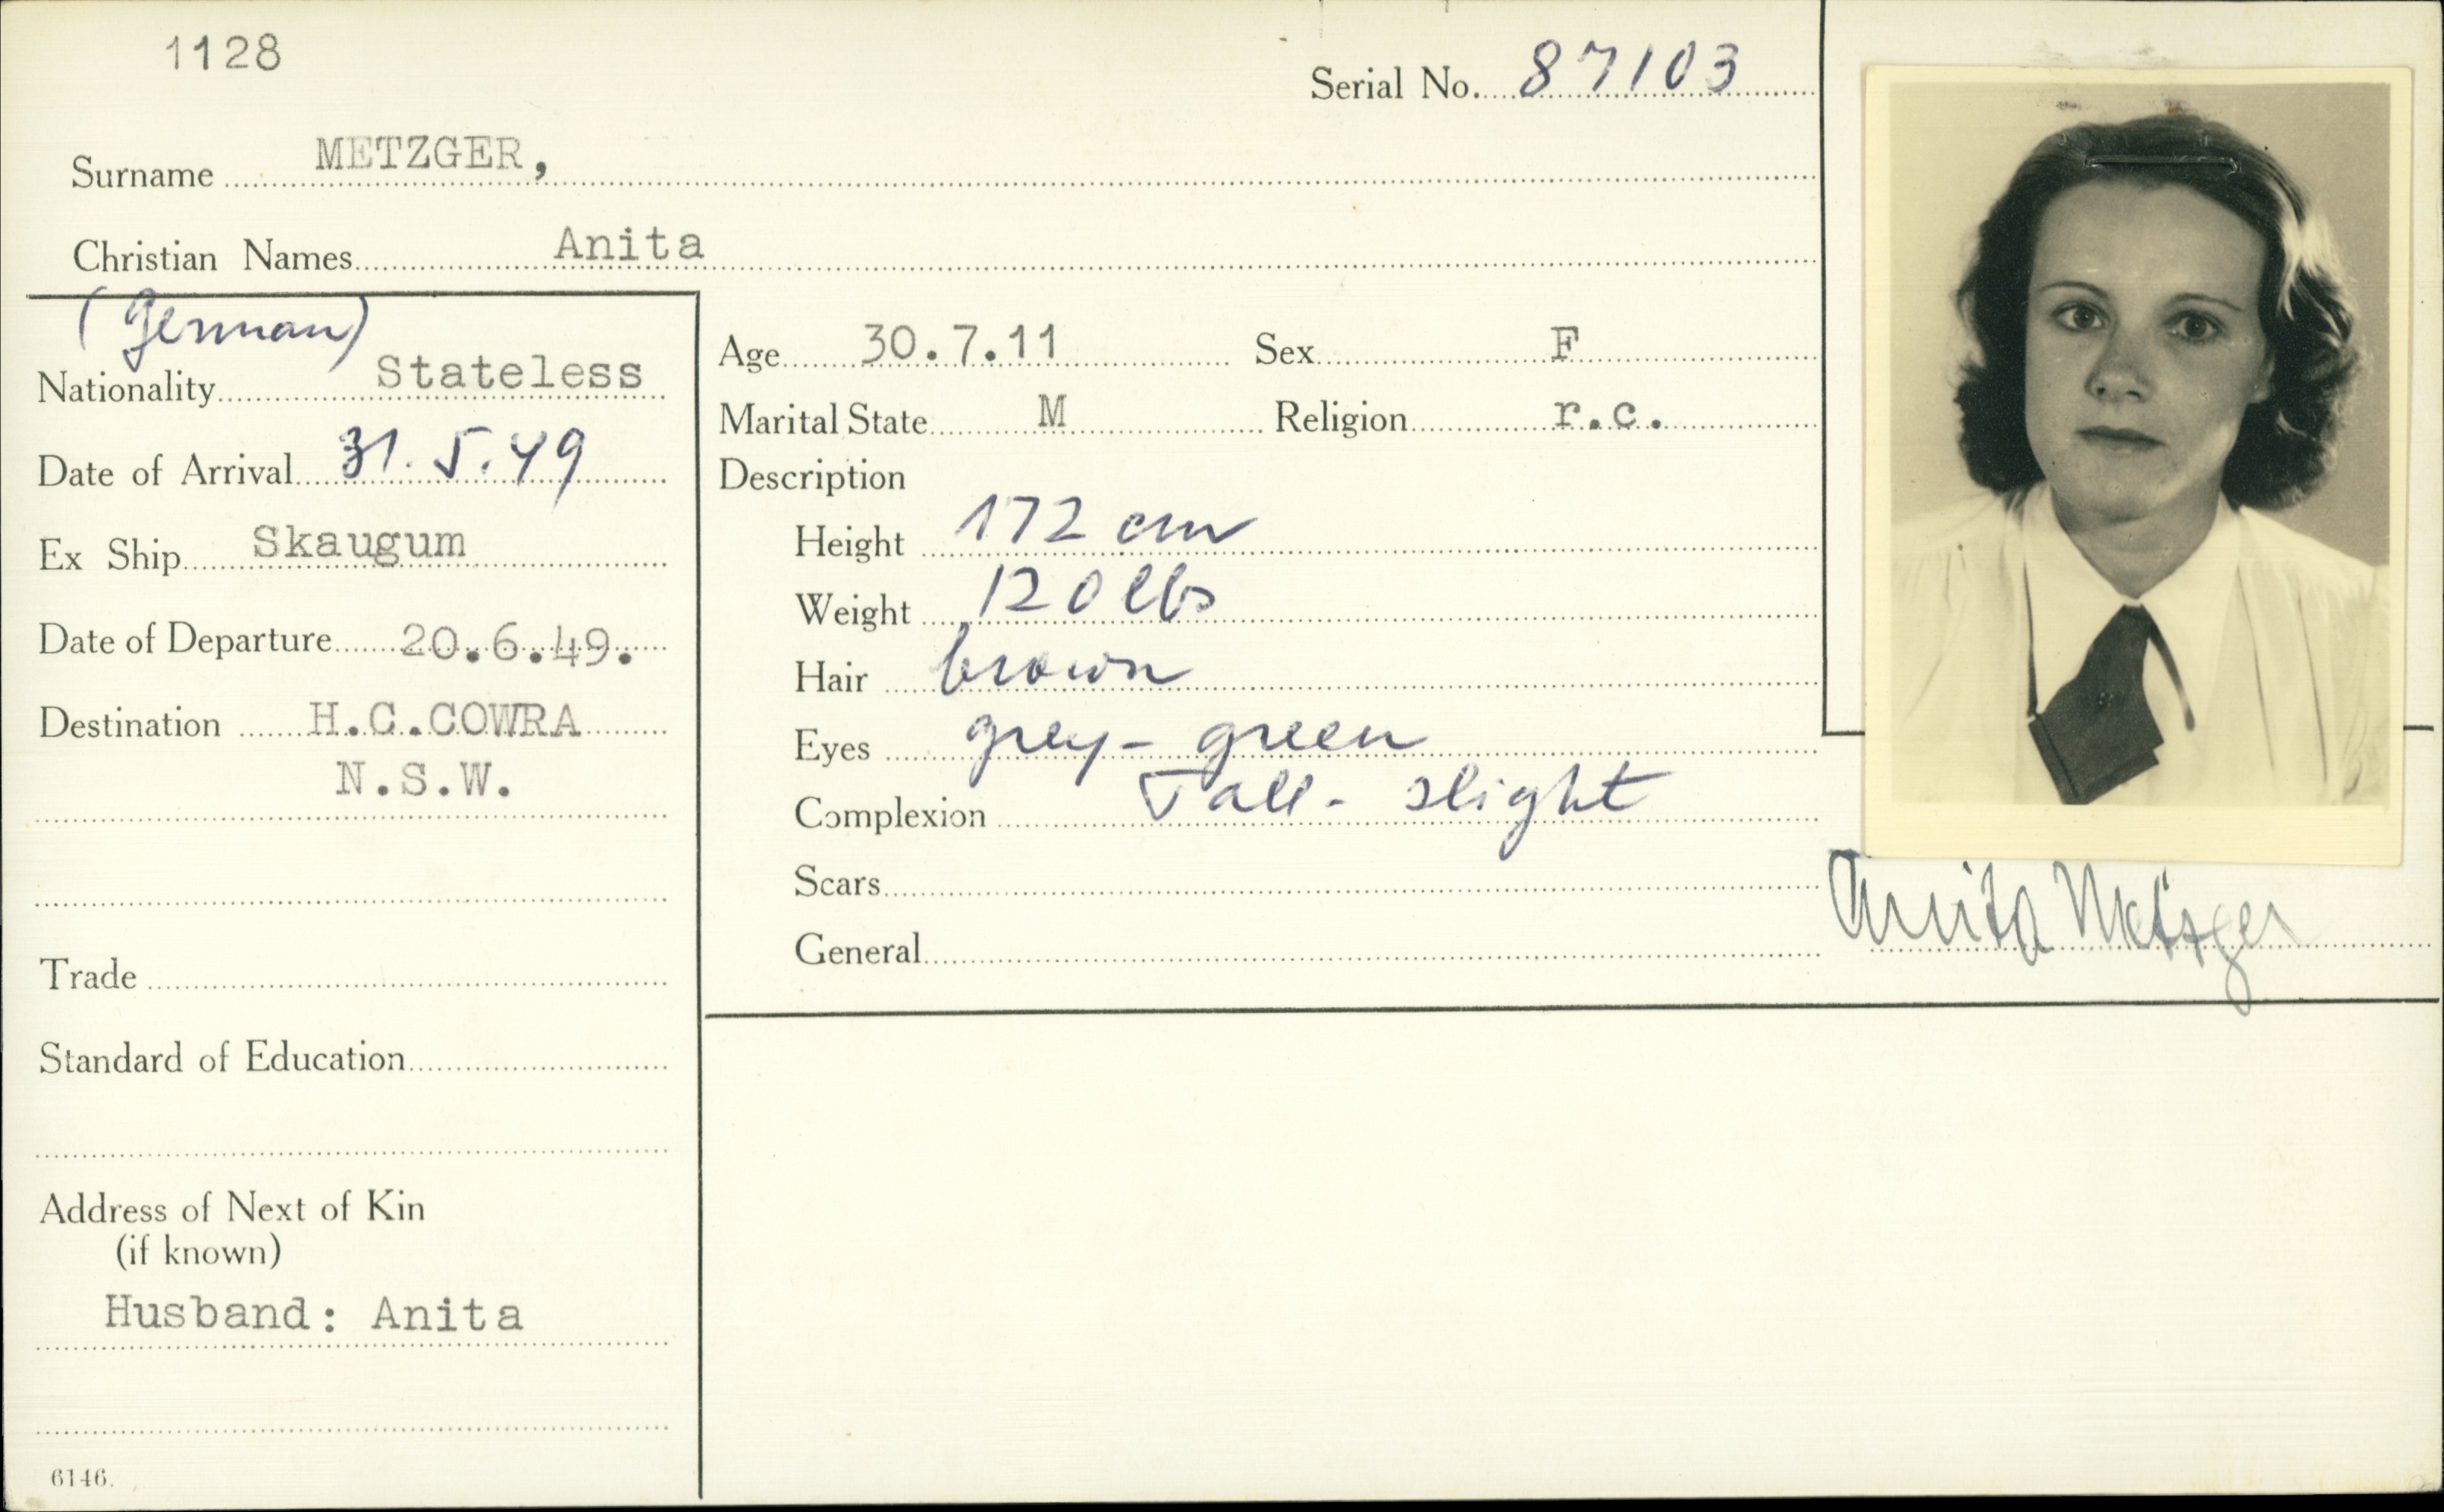 1128
Serial No. 87103
Surname METZGER,
Christian Names Anita
(German)
Nationality Stateless
Date of Arrival 31.5.49
Ex Ship Skaugum
Date of Departure 20.6.49.
Destination H.C.COWRA
N.S.W.
Trade
Standard of Education
Address of Next of Kin
(if known)
Husband: Anita
6146.
Age 30.7.11 Sex F
Marital State M Religion r.c.
Description
Height 172 cm
Weight 120 lbs
Hair brown
Eyes grey-green
Complexion Tall - slight
Scars
General
Anita Metzger